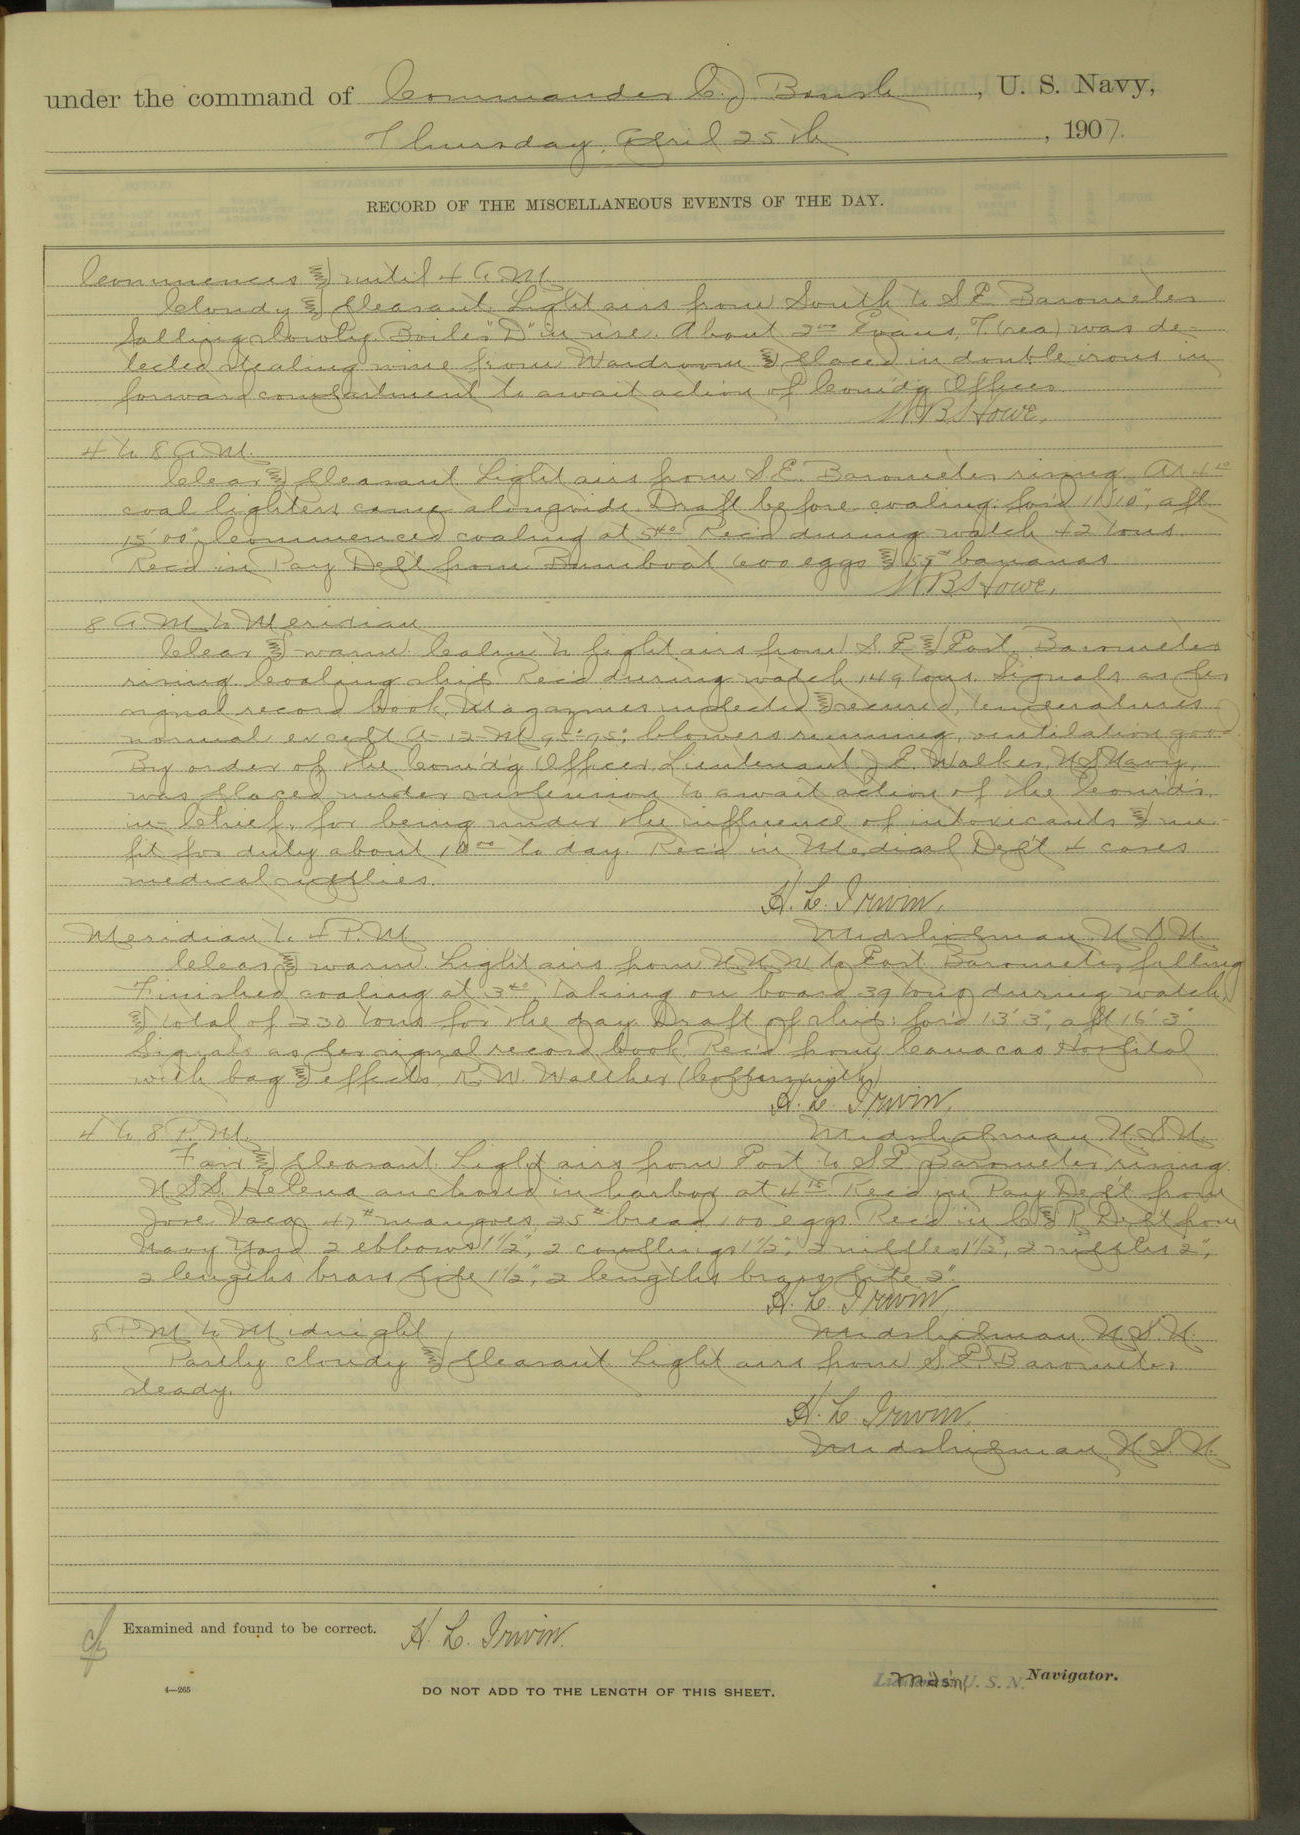 under the command of Commander C. J. Boush, U. S. Navy,
Thursday, April 25th, 1907.
RECORD OF THE MISCELLANEOUS EVENTS OF THE DAY.
Commences and until 4 A.M.
Cloudy and pleasant. Light airs from South to S.E. Barometer
falling slowly. Boiler "D" in use. About 2⁰⁰ Evans, T. (sea) was de-
tected stealing wine from Wardroom and placed in double irons in
forward compartment to await action of Com'd'g Officer.
W.B. Howe.
4 to 8 A.M.
Clear and pleasant. Light airs from S.E. Barometer rising. At
coal lighters came alongside. Draft before coaling: for'd 11' 10", aft
15' 00". Commenced coaling at 5⁴⁰. Rec'd during watch 42 tons.
Rec'd in Pay Dep't from Bumboat 600 eggs and bananas.
W.B. Howe.
8 A.M. to Meridian
Clear and warm. Calm to light airs from S.E. and East. Barometer
rising. Coaling ship. Rec'd during watch 149 tons. Signals as per
signal record book. Magazines inspected and secured, temperatures
normal except A-12-M, 95°-95°; blowers running, ventilation good.
By order of the Com'd'g Officer, Lieutenant J. E. Walker, U.S. Navy,
was placed under suspension to await action of the Com'd'r.
in-Chief, for being under the influence of intoxicants and un-
fit for duty about 10⁰⁰ to day. Rec'd in Medical Dep't 4 cases
medical supplies.
H. L. Irwin,
Midshipman U.S.N.
Meridian to 4 P.M.
Clear and warm. Light airs from N.N.W. to East. Barometer falling
Finished coaling at 3⁴⁰, taking on board 39 tons during watch,
and total of 230 tons for the day. Draft of ship: for'd 13' 3", aft 16' 3"
Signals as per signal record book. Rec'd from Canacao Hospital
with bag and effects, R. W. Walther (Coppersmith)
H. L. Irwin,
Midshipman U.S.N.
4 to 8 P.M.
Fair and pleasant. Light airs from East to S.E. Barometer rising.
U.S.S. Helena anchored in harbor at 4¹⁵. Rec'd in Pay Dep't from
Jose Vaca 47# mangoes, 25# bread, 100 eggs. Rec'd in C and R Dep't from
Navy Yard 2 ebbows 1½", 2 couplings 1½", 2 nipples 1½", 2 nipples 2",
2 lengths brass pipe 1½", 2 lengths brass pipe 2".
H. L. Irwin,
Midshipman U.S.N.
8 P.M. to Midnight
Partly cloudy and pleasant. Light airs from S.E. Barometer
steady.
H. L. Irwin,
Midshipman, U.S.N.
Examined and found to be correct. H. L. Irwin.
Mids'n, U. S. N. Navigator.
4—265
DO NOT ADD TO THE LENGTH OF THIS SHEET.